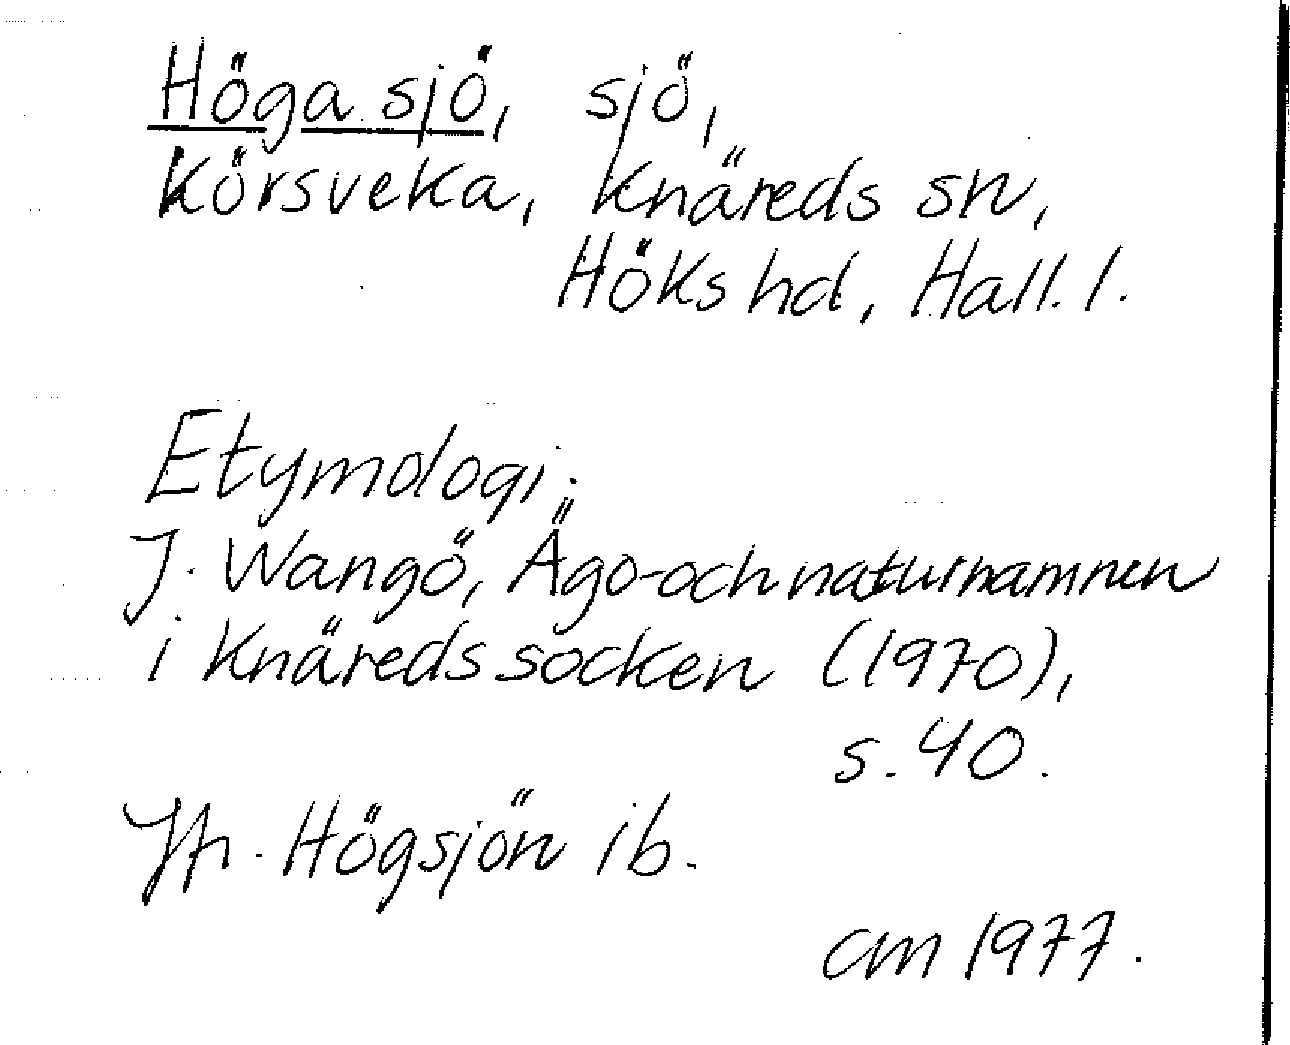 Höga sjö, sjö,
Körsveka, Knäreds sn,
Höks hd, Hall. l.
Etymologi:
J. Wangö, Ägo- och naturnamnen
i Knäreds socken (1970),
s. 40.
Jfr. Högsjön ib.
cm 1977.